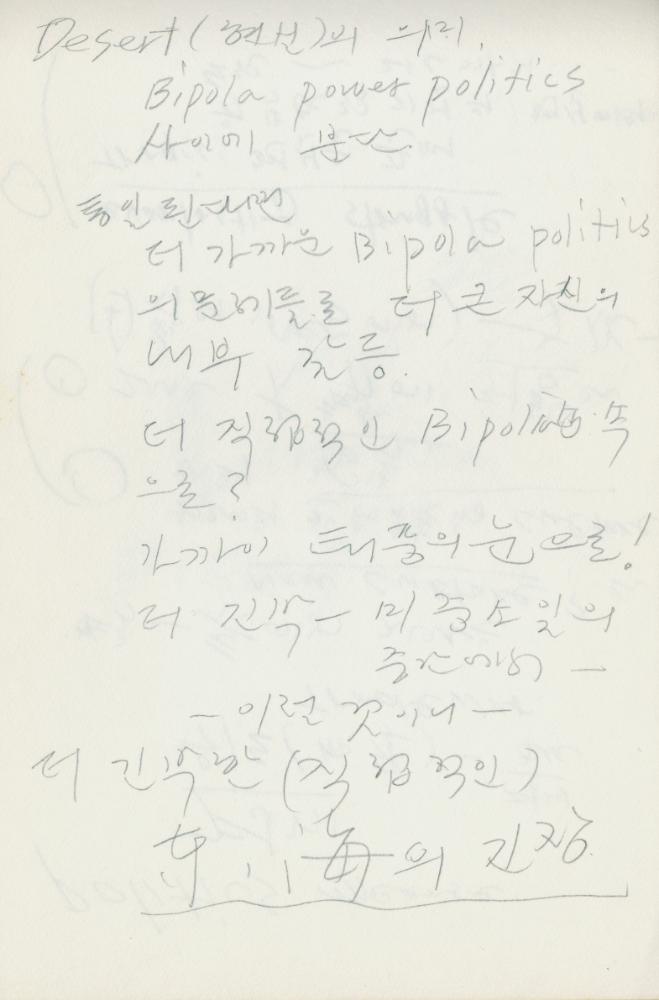 Desert (현선)의 의미,
Bipola power politics
사이에 분단.
통일 된다면
더 가까운 Bipola politics
의 문제들로 더 큰 자신의
내부 갈등.
더 직접적인 Bipola 속
으로?
가까이 태풍의 눈으로!
더 긴박 — 미 중 소 일의
중간에서 —
— 이런 것이나 —
더 긴박한 (직접적인)
海의 긴장.